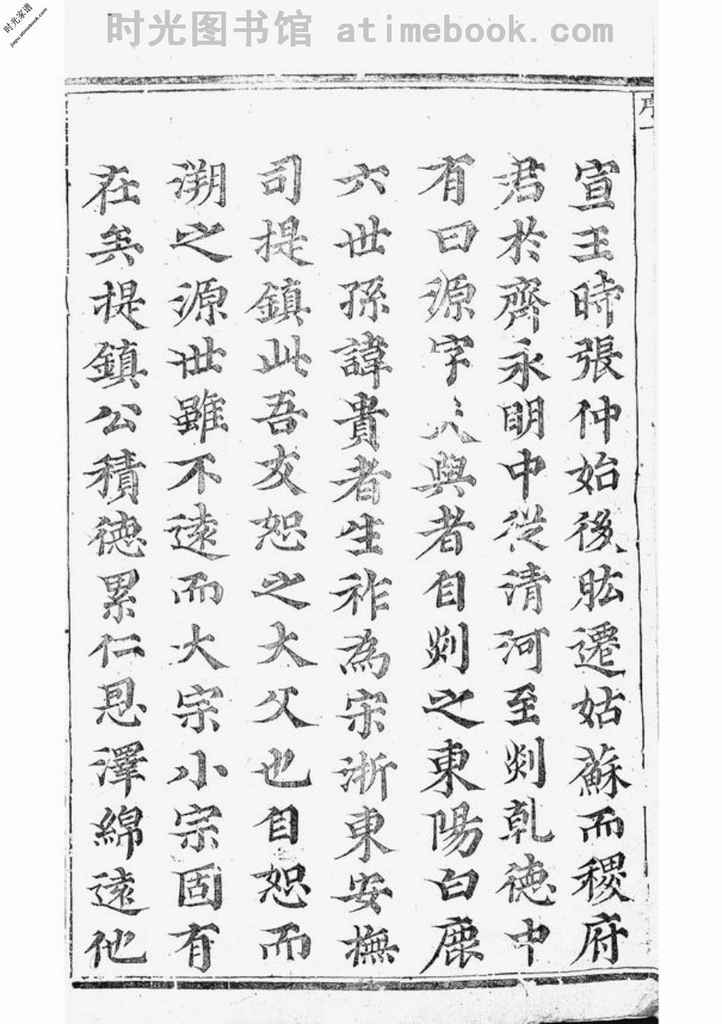 时光图书馆 atimebook.com
时光家谱
jiapu.atimebook.com
序
宣王時張仲始後肱遷姑蘇而稷府
君於齊永明中從清河至剡乹德中
有曰源字 與者自剡之東陽白鹿
六世孫諱貴者生祚為宋浙東安撫
司提鎮此吾友恕之大父也自恕而
溯之源世雖不遠而大宗小宗固有
在矣提鎮公積德累仁恩澤綿遠他